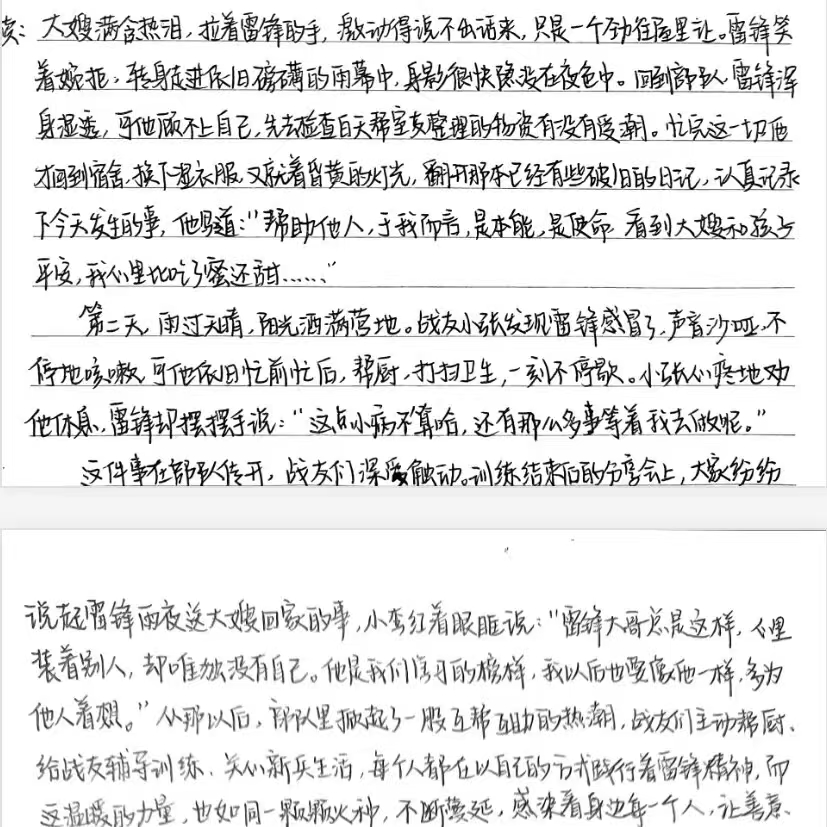 续：大嫂满含热泪，拉着雷锋的手，激动得说不出话来，只是一个劲往屋里让。雷锋笑
着婉拒，转身走进依旧磅礴的雨幕中，身影很快隐没在夜色中。回到部队，雷锋浑
身湿透，可他顾不上自己，先去检查白天帮室友整理的物资有没有受潮。忙完这一切他
才回到宿舍，换下湿衣服，又就着昏黄的灯光，翻开那本已经有些破旧的日记，认真记录
下今天发生的事，他写道：“帮助他人，于我而言，是本能，是使命，看到大嫂和孩子
平安，我心里比吃了蜜还甜……”
第二天，雨过天晴，阳光洒满营地。战友小张发现雷锋感冒了，声音沙哑，不
停地咳嗽，可他依旧忙前忙后，帮厨，打扫卫生，一刻不停歇。小张心疼地劝
他休息，雷锋却摆摆手说：“这点小病不算啥，还有那么多事等着我去做呢。”
这件事在部队传开，战友们深受触动。训练结束后的分享会上，大家纷纷
说起雷锋雨夜送大嫂回家的事，小李红着眼眶说：“雷锋大哥总是这样，心里
装着别人，却唯独没有自己。他是我们学习的榜样，我以后也要像他一样，多为
他人着想。”从那以后，部队里掀起了一股互帮互助的热潮，战友们主动帮厨、
给战友辅导训练、关心新兵生活，每个人都在以自己的方式践行着雷锋精神，而
这温暖的力量，也如同一颗颗火种，不断蔓延，感染着身边每一个人，让善意、